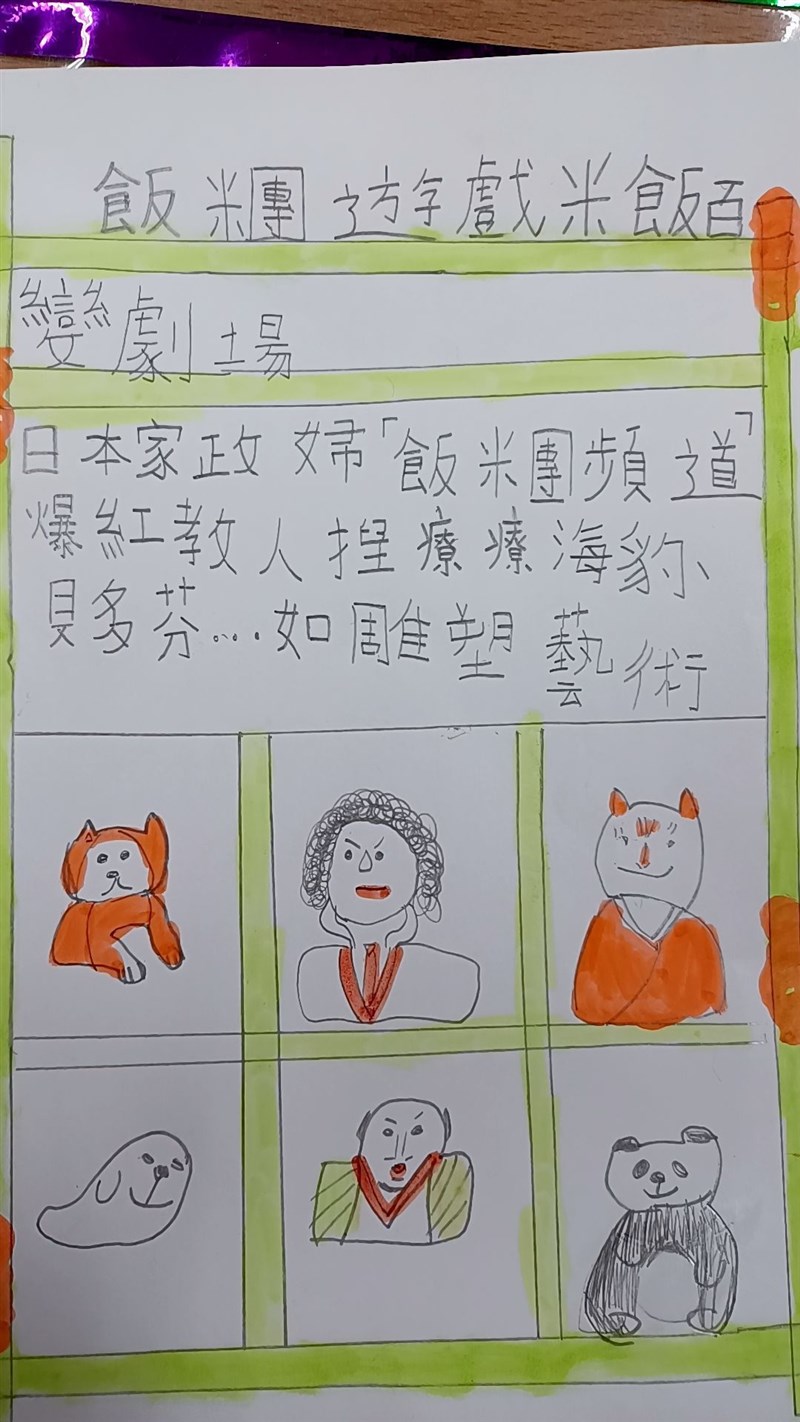 飯米團遊戲米飯百
變劇場
日本家政婦「飯米團頻道」
爆紅教人捏療療海豹
貝多芬...如雕塑藝術